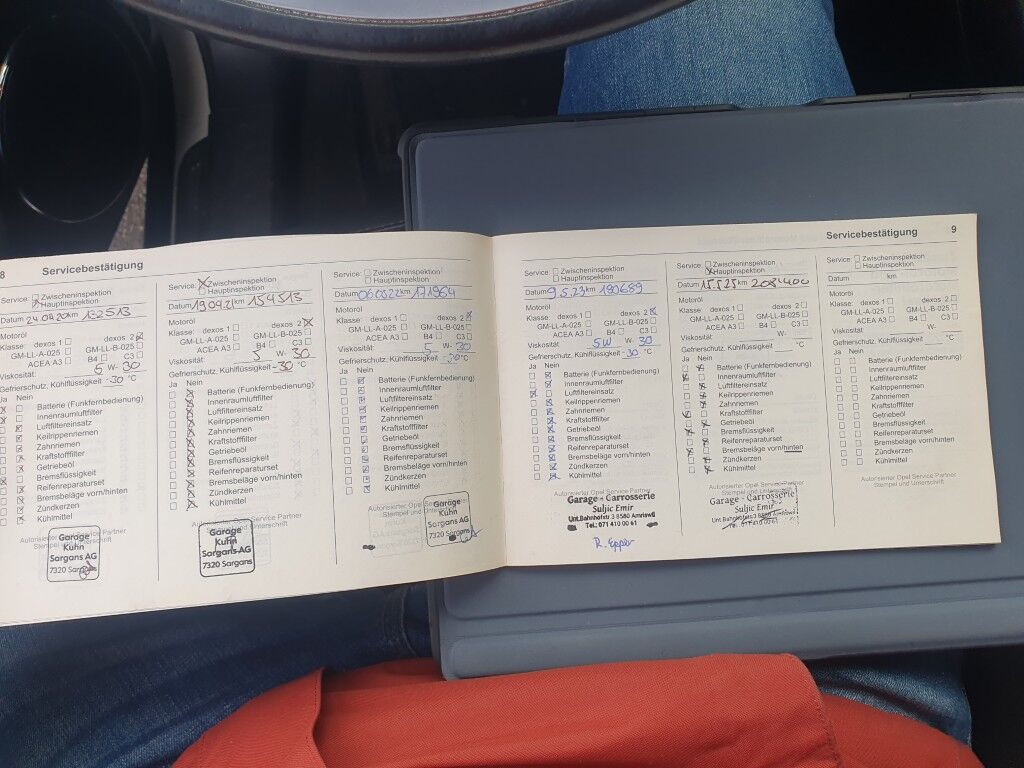 8 Servicebestätigung
Service: Zwischeninspektion
Hauptinspektion
Datum 24.04.20 km 132513
Motoröl
Klasse: dexos 1 dexos 2
GM-LL-A-025 GM-LL-B-025
ACEA A3 B4 C3
Viskosität: 5 W- 30
Gefrierschutz, Kühlflüssigkeit -30 °C
Ja Nein
Batterie (Funkfernbedienung)
Innenraumluftfilter
Luftfiltereinsatz
Keilrippenriemen
Zahnriemen
Kraftstofffilter
Getriebeöl
Bremsflüssigkeit
Reifenreparaturset
Bremsbeläge vorn/hinten
Zündkerzen
Kühlmittel
Autorisierter Opel Service Partner
Stempel und Unterschrift
Garage
Kuhn
Sargans AG
7320 Sargans
Service: Zwischeninspektion
Hauptinspektion
Datum 19.04.21 km 154513
Motoröl
Klasse: dexos 1 dexos 2
GM-LL-A-025 GM-LL-B-025
ACEA A3 B4 C3
Viskosität: 5 W- 30
Gefrierschutz, Kühlflüssigkeit -30 °C
Ja Nein
Batterie (Funkfernbedienung)
Innenraumluftfilter
Luftfiltereinsatz
Keilrippenriemen
Zahnriemen
Kraftstofffilter
Getriebeöl
Bremsflüssigkeit
Reifenreparaturset
Bremsbeläge vorn/hinten
Zündkerzen
Kühlmittel
Autorisierter Opel Service Partner
Stempel und Unterschrift
Garage
Kuhn
Sargans AG
7320 Sargans
Service: Zwischeninspektion
Hauptinspektion
Datum km 171964
Motoröl
Klasse: dexos 1 dexos 2
GM-LL-A-025 GM-LL-B-025
ACEA A3 B4 C3
Viskosität: 5 W- 30
Gefrierschutz, Kühlflüssigkeit -30 °C
Ja Nein
Batterie (Funkfernbedienung)
Innenraumluftfilter
Luftfiltereinsatz
Keilrippenriemen
Zahnriemen
Kraftstofffilter
Getriebeöl
Bremsflüssigkeit
Reifenreparaturset
Bremsbeläge vorn/hinten
Zündkerzen
Kühlmittel
Autorisierter Opel Service Partner
Stempel und
Garage
Kuhn
Sargans AG
7320 Sargans
Servicebestätigung 9
Service: Zwischeninspektion
Hauptinspektion
Datum 9.5.23 km 190689
Motoröl
Klasse: dexos 1 dexos 2
GM-LL-A-025 GM-LL-B-025
ACEA A3 B4 C3
Viskosität: 5W W- 30
Gefrierschutz, Kühlflüssigkeit -30 °C
Ja Nein
Batterie (Funkfernbedienung)
Innenraumluftfilter
Luftfiltereinsatz
Keilrippenriemen
Zahnriemen
Kraftstofffilter
Getriebeöl
Bremsflüssigkeit
Reifenreparaturset
Bremsbeläge vorn/hinten
Zündkerzen
Kühlmittel
Autorisierter Opel Service Partner
Garage - Carrosserie
Suljic Emir
Unt.Bahnhofstr.3 8580 Amriswil
Tel.: 071 410 00 61
R. Epper
Service: Zwischeninspektion
Hauptinspektion
Datum 15.5.25 km 208'400
Motoröl
Klasse: dexos 1 dexos 2
GM-LL-A-025 GM-LL-B-025
ACEA A3 B4 C3
Viskosität: W-
Gefrierschutz, Kühlflüssigkeit °C
Ja Nein
Batterie (Funkfernbedienung)
Innenraumluftfilter
Luftfiltereinsatz
Keilrippenriemen
Zahnriemen
Kraftstofffilter
Getriebeöl
Bremsflüssigkeit
Reifenreparaturset
Bremsbeläge vorn/hinten
Zündkerzen
Kühlmittel
Autorisierter Opel Service Partner
Stempel und Unterschrift
Garage - Carrosserie
Suljic Emir
Unt.Bahnhofstr.3 8580 Amriswil
Tel. 071 410 00 61
Service: Zwischeninspektion
Hauptinspektion
Datum km
Motoröl
Klasse: dexos 1 dexos 2
GM-LL-A-025 GM-LL-B-025
ACEA A3 B4 C3
Viskosität: W-
Gefrierschutz, Kühlflüssigkeit °C
Ja Nein
Batterie (Funkfernbedienung)
Innenraumluftfilter
Luftfiltereinsatz
Keilrippenriemen
Zahnriemen
Kraftstofffilter
Getriebeöl
Bremsflüssigkeit
Reifenreparaturset
Bremsbeläge vorn/hinten
Zündkerzen
Kühlmittel
Autorisierter Opel Service Partner
Stempel und Unterschrift